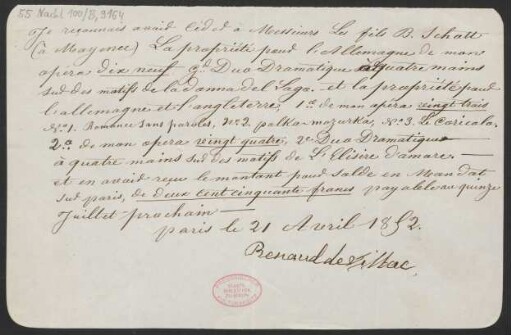 55 Nachl 100/B, 9164
Je reconnais avoir cédé à Messieurs Les fils B. Schott
(à Mayence) La propriété pour l'Allemagne de mon
opera dix neuf gd. Duo Dramatique à quatre mains
sur des motifs de la Donna del Lago. et la propriété pour
l'allemagne et l'angleterre, 1o. de mon opera vingt trois
No. 1. Romance sans paroles, No. 2. polka-mazurka, No. 3. Le Caricolo.
2o. de mon opera vingt quatre, 2e Duo Dramatique
à quatre mains sur des motifs de L'Elisire d'amore.
et en avoir reçu le montant pour solde en Mandat
sur paris, de deux cent cinquante francs payable au quinze
Juillet prochain
paris le 21 Avril 1852.
Renaud de Vilbac